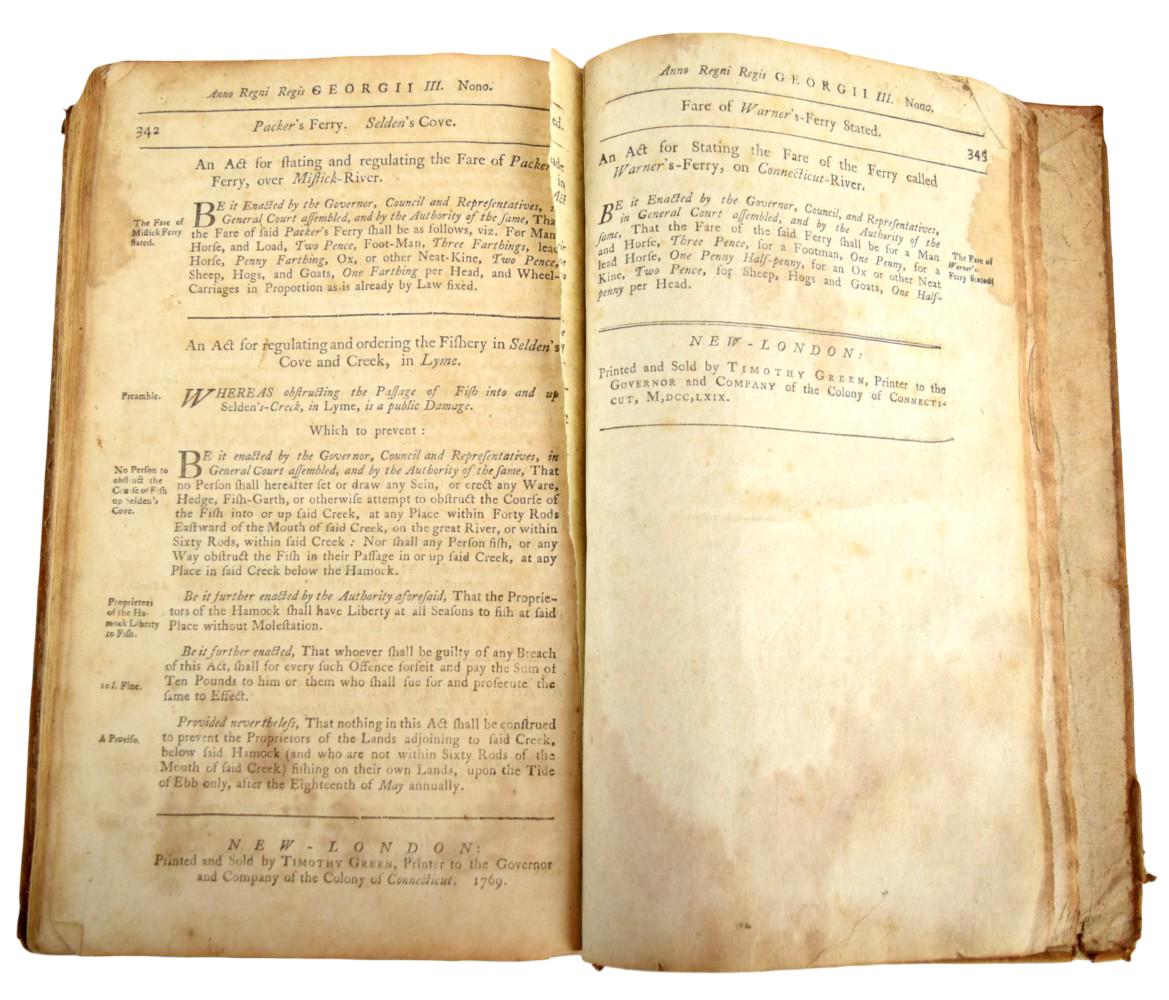 Anno Regni Regis GEORGII III. Nono.
342
Packer's Ferry. Selden's Cove.
An Act for ſtating and regulating the Fare of Packer
Ferry, over Miſtick-River.
The Fare of
Miſtick Ferry
ſtated.
BE it Enacted by the Governor, Council and Repreſentatives,
General Court aſſembled, and by the Authority of the ſame, Tha
the Fare of ſaid Packer's Ferry ſhall be as follows, viz. For Man
Horſe, and Load, Two Pence, Foot-Man, Three Farthings, lead
Horſe, Penny Farthing, Ox, or other Neat-Kine, Two Pence,
Sheep, Hogs, and Goats, One Farthing per Head, and Wheel-
Carriages in Proportion as is already by Law fixed.
An Act for regulating and ordering the Fiſhery in Selden's
Cove and Creek, in Lyme.
Preamble.
WHEREAS obſtructing the Paſſage of Fiſh into and up
Selden's-Creek, in Lyme, is a public Damage.
Which to prevent :
No Perſon to
obſtruct the
Courſe of Fiſh
up Selden's
Cove.
BE it enacted by the Governor, Council and Repreſentatives, in
General Court aſſembled, and by the Authority of the ſame, That
no Perſon ſhall hereafter ſet or draw any Sein, or erect any Ware,
Hedge, Fiſh-Garth, or otherwiſe attempt to obſtruct the Courſe of
the Fiſh into or up ſaid Creek, at any Place within Forty Rods
Eaſtward of the Mouth of ſaid Creek, on the great River, or within
Sixty Rods, within ſaid Creek : Nor ſhall any Perſon fiſh, or any
Way obſtruct the Fiſh in their Paſſage in or up ſaid Creek, at any
Place in ſaid Creek below the Hamock.
Proprietors
of the Ha-
mock Liberty
to Fiſh.
Be it further enacted by the Authority aforeſaid, That the Proprie-
tors of the Hamock ſhall have Liberty at all Seaſons to fiſh at ſaid
Place without Moleſtation.
Be it further enacted, That whoever ſhall be guilty of any Breach
of this Act, ſhall for every ſuch Offence forfeit and pay the Sum of
10 l. Fine.
Ten Pounds to him or them who ſhall ſue for and proſecute the
ſame to Effect.
A Proviſo.
Provided nevertheleſs, That nothing in this Act ſhall be conſtrued
to prevent the Proprietors of the Lands adjoining to ſaid Creek,
below ſaid Hamock (and who are not within Sixty Rods of the
Mouth of ſaid Creek) fiſhing on their own Lands, upon the Tide
of Ebb only, after the Eighteenth of May annually.
NEW-LONDON:
Printed and Sold by TIMOTHY GREEN, Printer to the Governor
and Company of the Colony of Connecticut. 1769.
Anno Regni Regis GEORGII III. Nono.
Fare of Warner's-Ferry Stated.
343
An Act for Stating the Fare of the Ferry called
Warner's-Ferry, on Connecticut-River.
BE it Enacted by the Governor, Council, and Repreſentatives,
in General Court aſſembled, and by the Authority of the
ſame, That the Fare of the ſaid Ferry ſhall be for a Man
and Horſe, Three Pence, for a Footman, One Penny, for a
lead Horſe, One Penny Half-penny, for an Ox or other Neat
Kine, Two Pence, for Sheep, Hogs and Goats, One Half-
penny per Head.
The Fare of
Warner's-
Ferry ſtated
NEW-LONDON:
Printed and Sold by TIMOTHY GREEN, Printer to the
GOVERNOR and COMPANY of the Colony of CONNECTI-
CUT, M,DCC,LXIX.